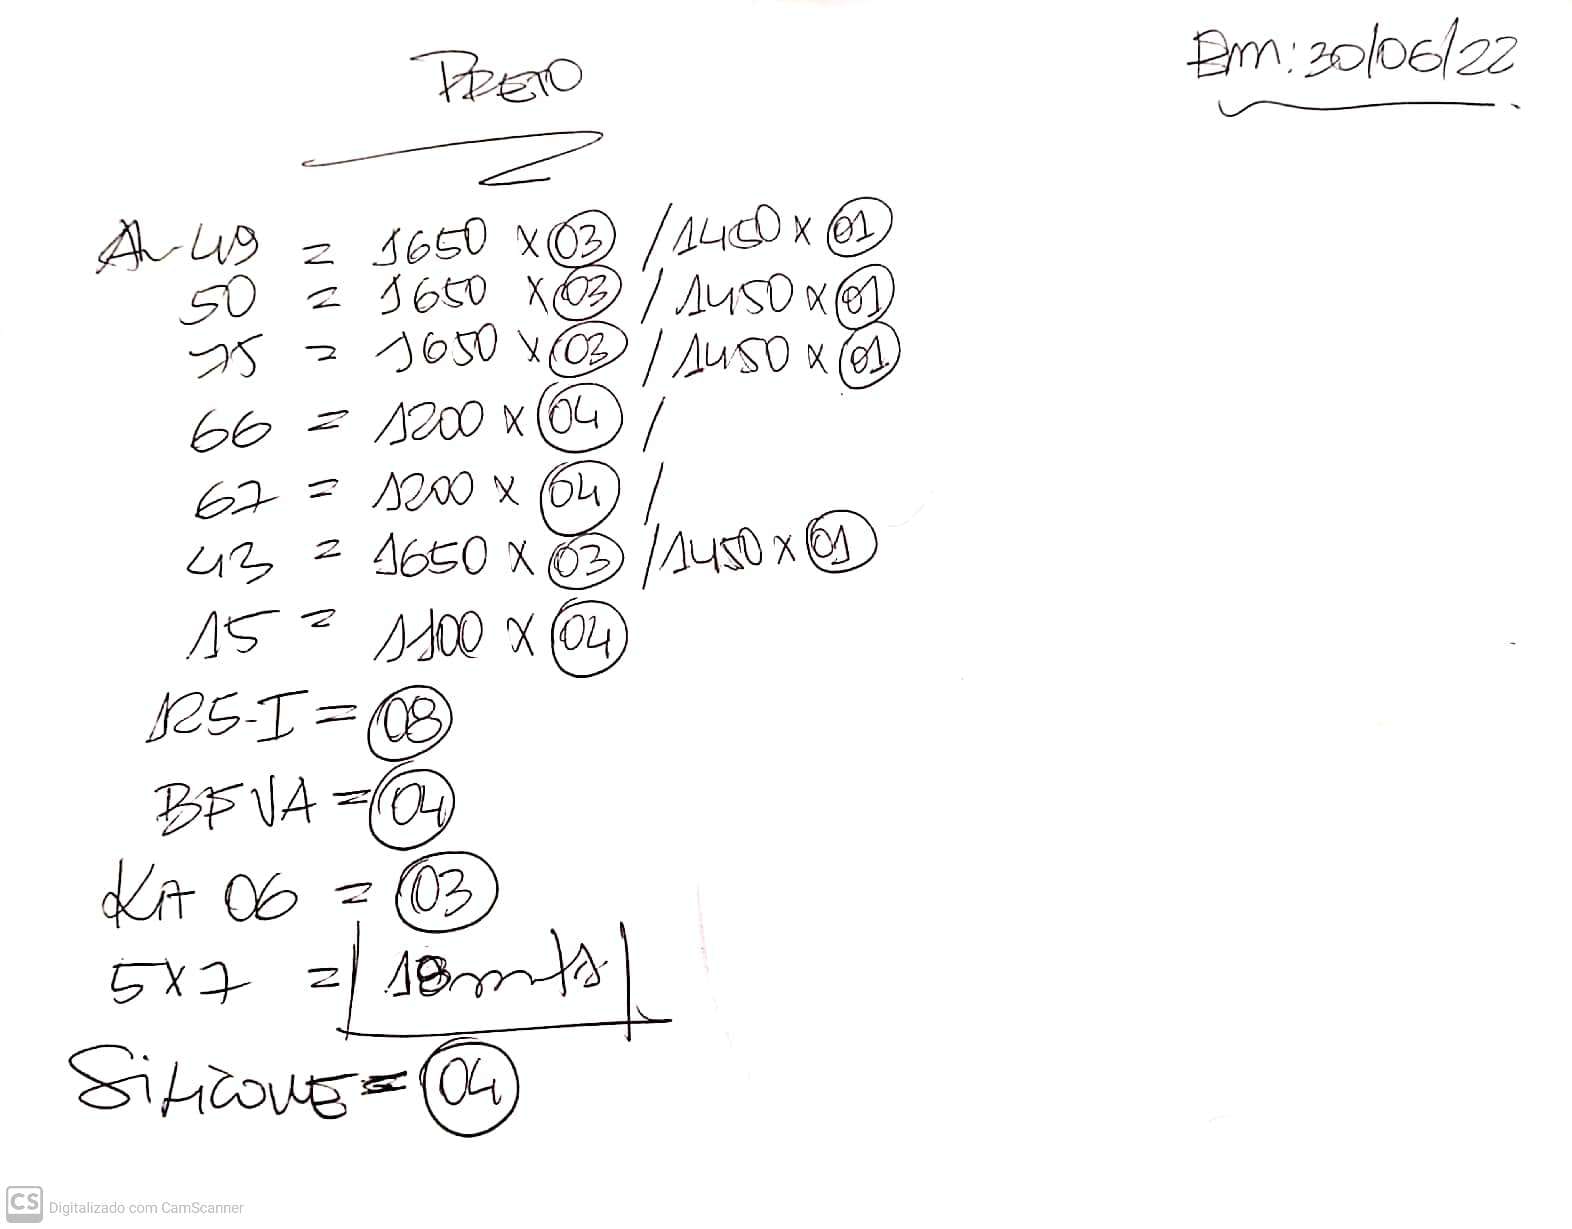 PRETO
Em: 30/06/22
AL-49 = 1650 x 03 / 1450 x 01
50 = 1650 x 03 / 1450 x 01
75 = 1650 x 03 / 1450 x 01
66 = 1200 x 04 /
67 = 1200 x 04 /
43 = 1650 x 03 / 1450 x 01
15 = 1100 x 04
125-I = 08
BF VA = 04
KIT 06 = 03
5x7 = 18 mts
SILICONE = 04
CS Digitalizado com CamScanner